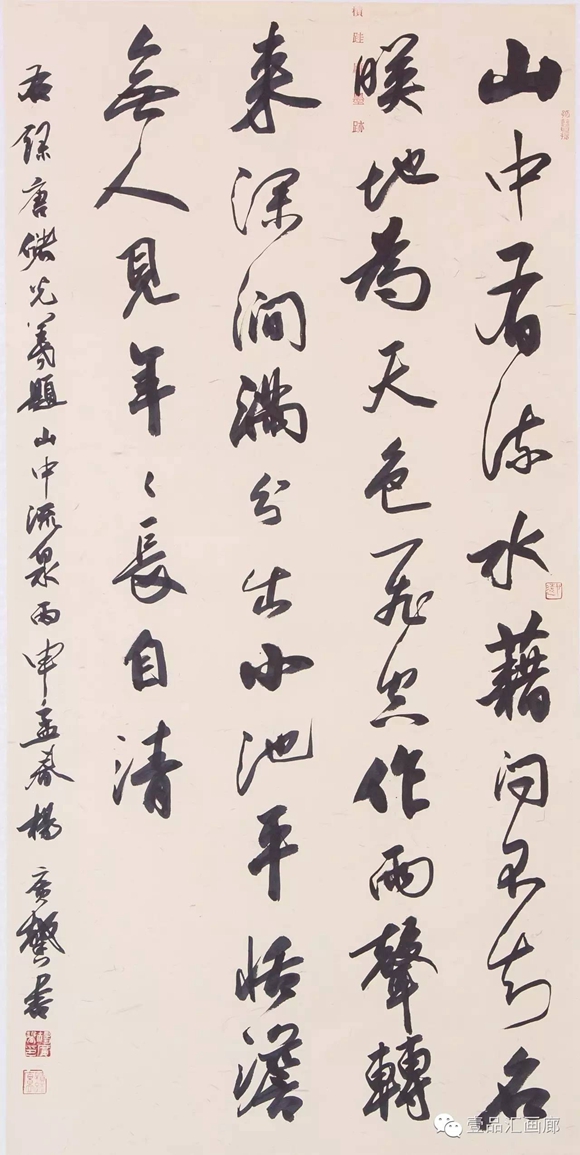 山中看流水藉问不知名
暎地為天色飛空作雨聲轉
来深澗滿分出小池平恬澹
無人見年〻長自清
右録唐儲光羲題山中流泉丙申孟春楊廣馨書
壹品汇画廊